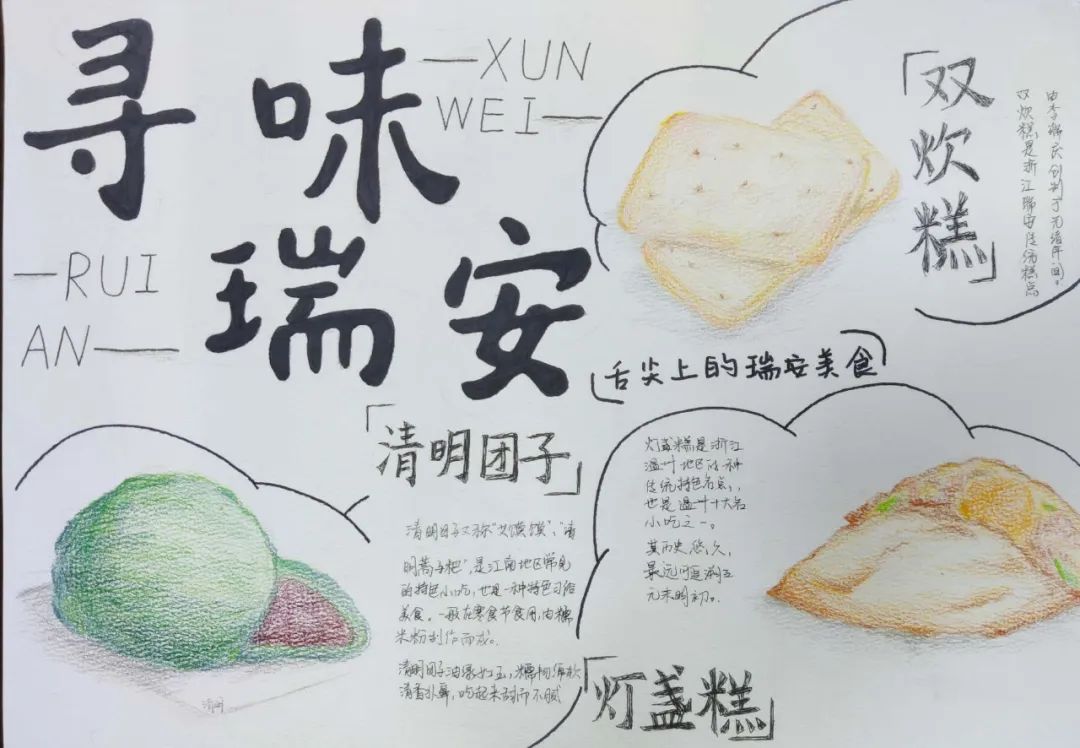 寻味
—XUN
WEI—
—RUI
瑞安
AN—
「双炊糕」
双炊糕是浙江瑞安传统糕点
舌尖上的瑞安美食
「清明团子」
清明团子又称"艾馍馍"、"清
是江南地区常见
的特色小吃,也是一种特色习俗
美食。一般在寒食节食用,由糯
米粉制作而成。
清明团子油绿如玉,糯韧绵软
清香扑鼻,吃起来甜而不腻
清明
灯盏糕是浙江
温州地区的一种
传统特色名点,
也是温州十大名
小吃之一。
其历史悠久,
最远可追溯至
元末明初。
「灯盏糕」